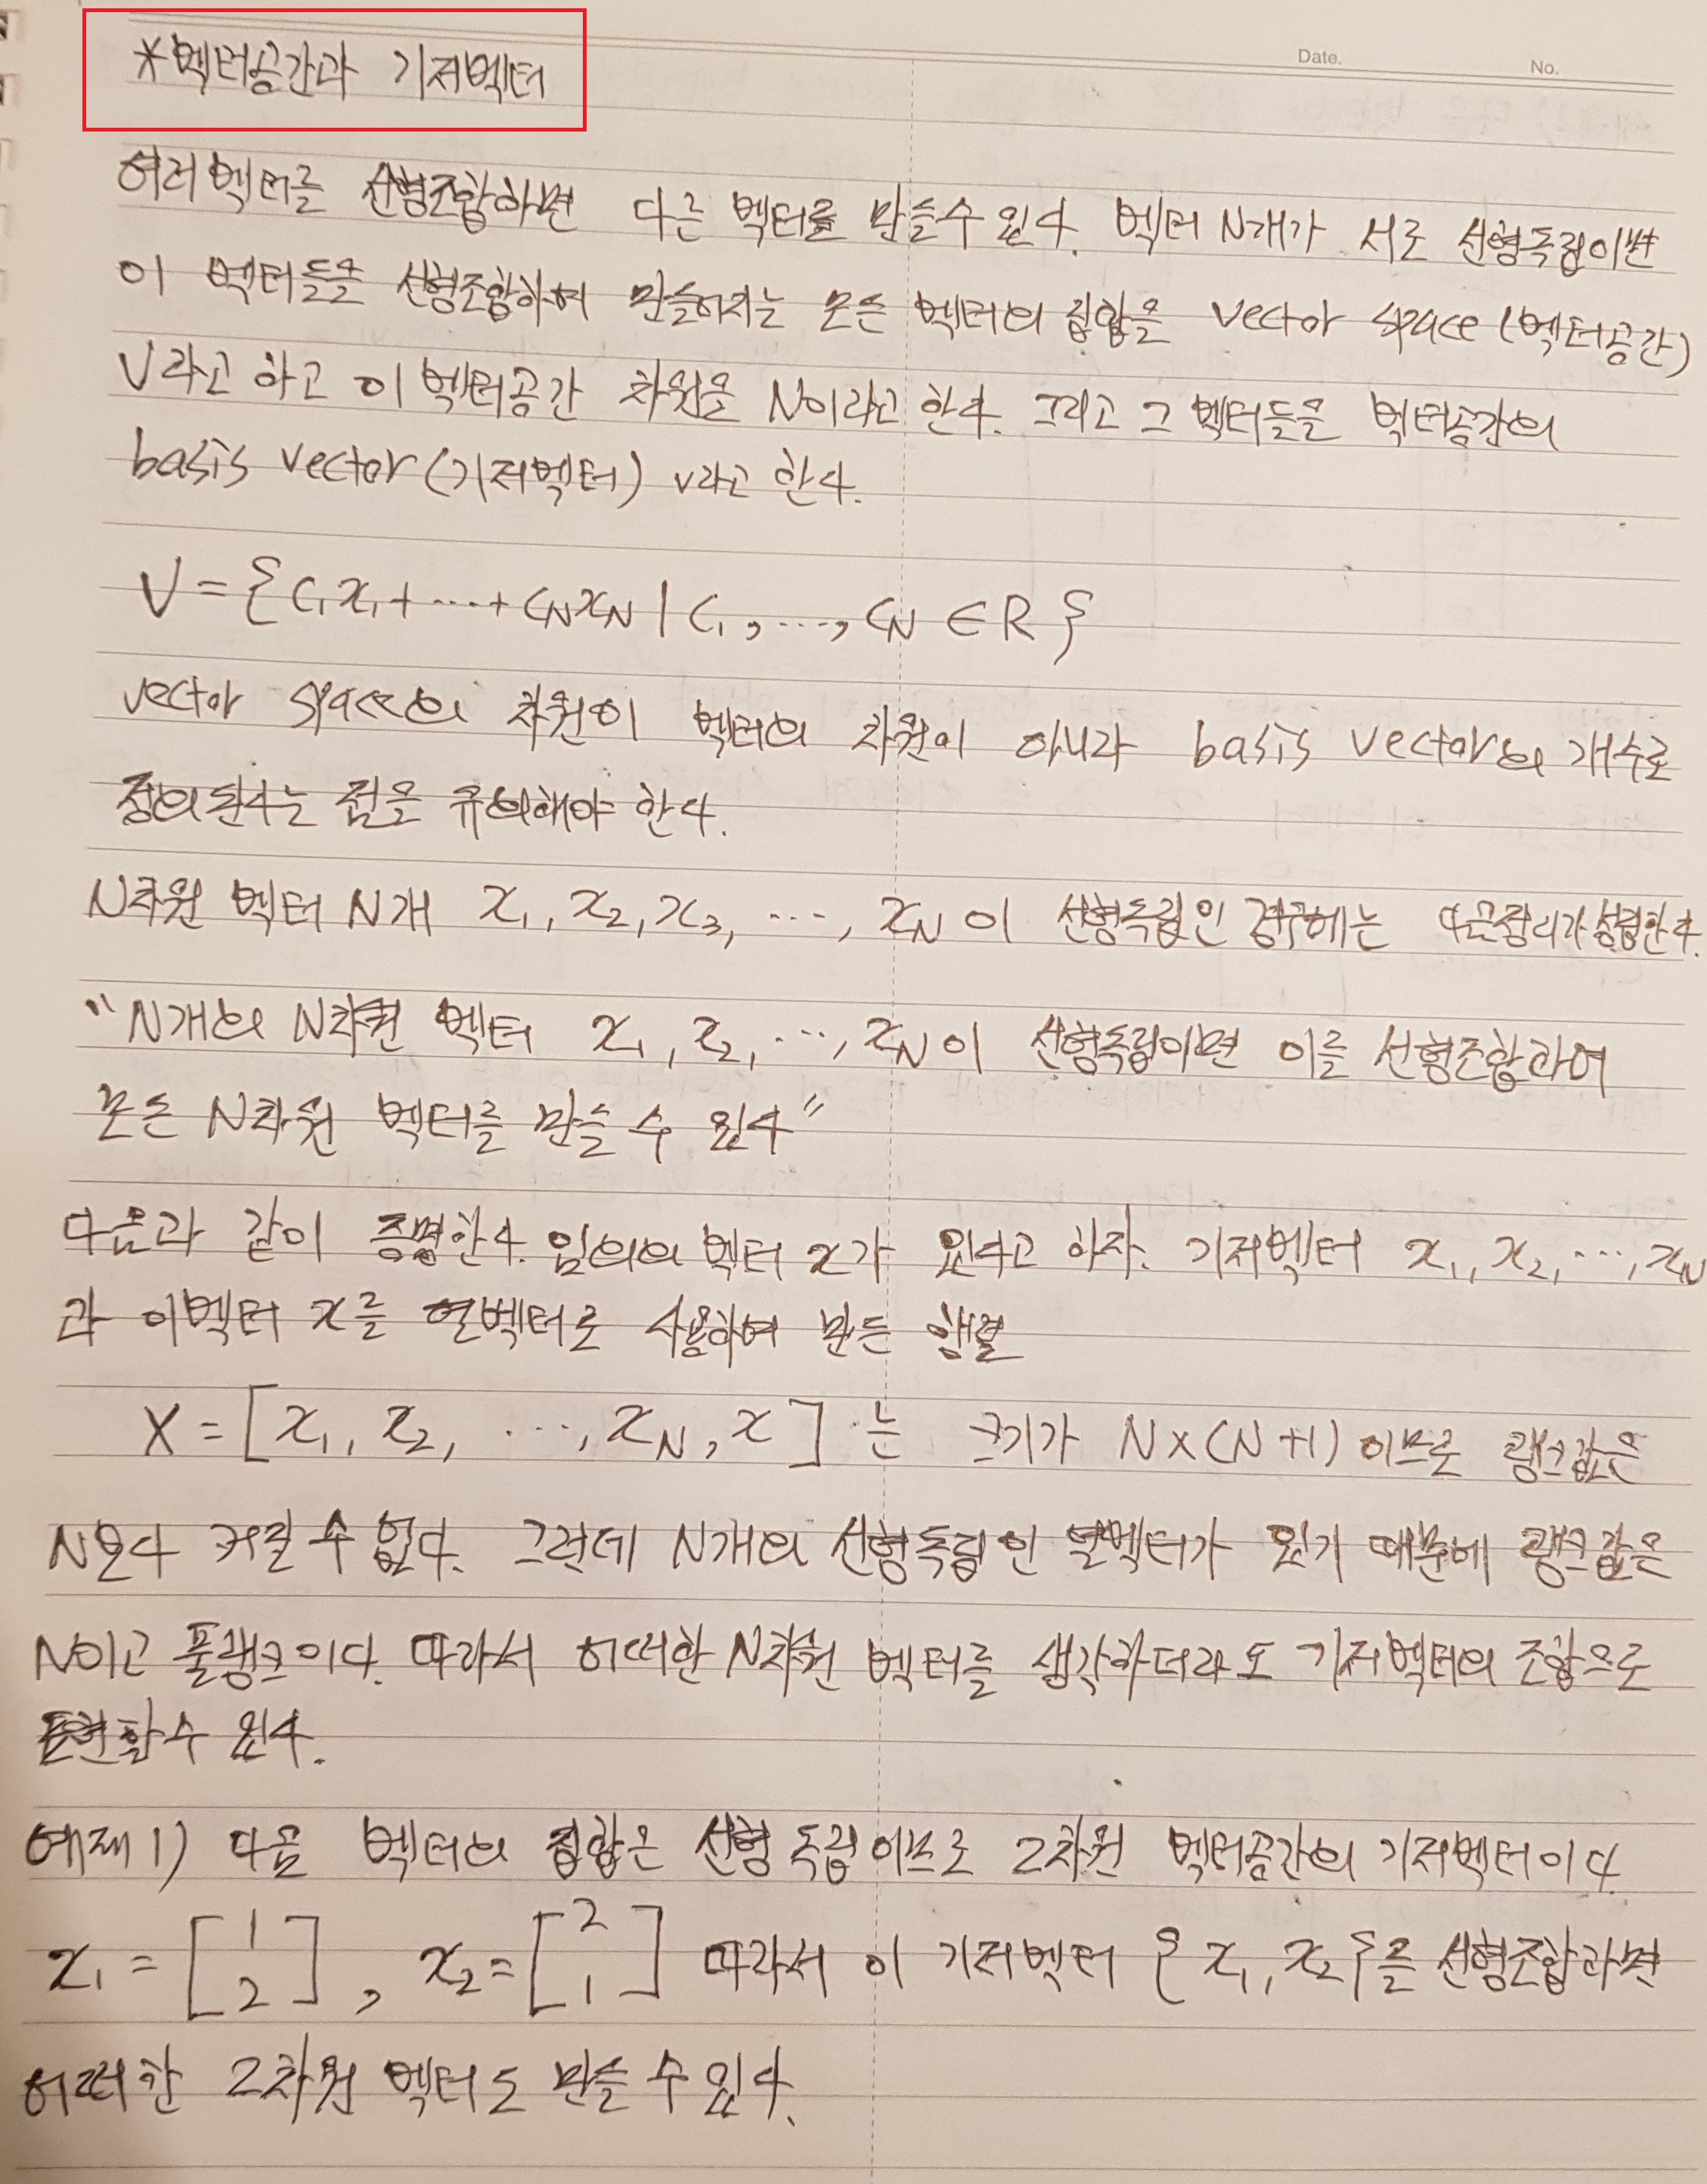 Date.
No.
*벡터공간과 기저벡터
여러벡터를 선형조합하면 다른 벡터를 만들수 있다. 벡터 N개가 서로 선형독립이면
이 벡터들을 선형조합하여 만들어지는 모든 벡터의 집합을 vector space (벡터공간)
V라고 하고 이 벡터공간 차원을 N이라고 한다. 그리고 그 벡터들을 벡터공간의
basis vector (기저벡터) v라고 한다.
V = {c₁x₁ + ⋯ + c_N x_N | c₁, ⋯, c_N ∈ R}
vector space의 차원이 벡터의 차원이 아니라 basis vector의 개수로
정의된다는 점을 유의해야 한다.
N차원 벡터 N개 x₁, x₂, x₃, ⋯, x_N 이 선형독립인 경우에는 다음정리가 성립한다.
"N개의 N차원 벡터 x₁, x₂, ⋯, x_N이 선형독립이면 이를 선형조합하여
모든 N차원 벡터를 만들 수 있다"
다음과 같이 증명한다. 임의의 벡터 x가 있다고 하자. 기저벡터 x₁, x₂, ⋯, x_N
과 이벡터 x를 열벡터로 사용하여 만든 행렬
X = [x₁, x₂, ⋯, x_N, x] 는 크기가 N×(N+1) 이므로 랭크값은
N보다 커질 수 없다. 그런데 N개의 선형독립인 열벡터가 있기 때문에 랭크값은
N이고 풀랭크이다. 따라서 어떠한 N차원 벡터를 생각하더라도 기저벡터의 조합으로
표현할수 있다.
예제1) 다음 벡터의 집합은 선형 독립이므로 2차원 벡터공간의 기저벡터이다
x₁ = [1 2], x₂ = [2 1] 따라서 이 기저벡터 {x₁, x₂}를 선형조합하면
어떠한 2차원 벡터도 만들 수 있다.